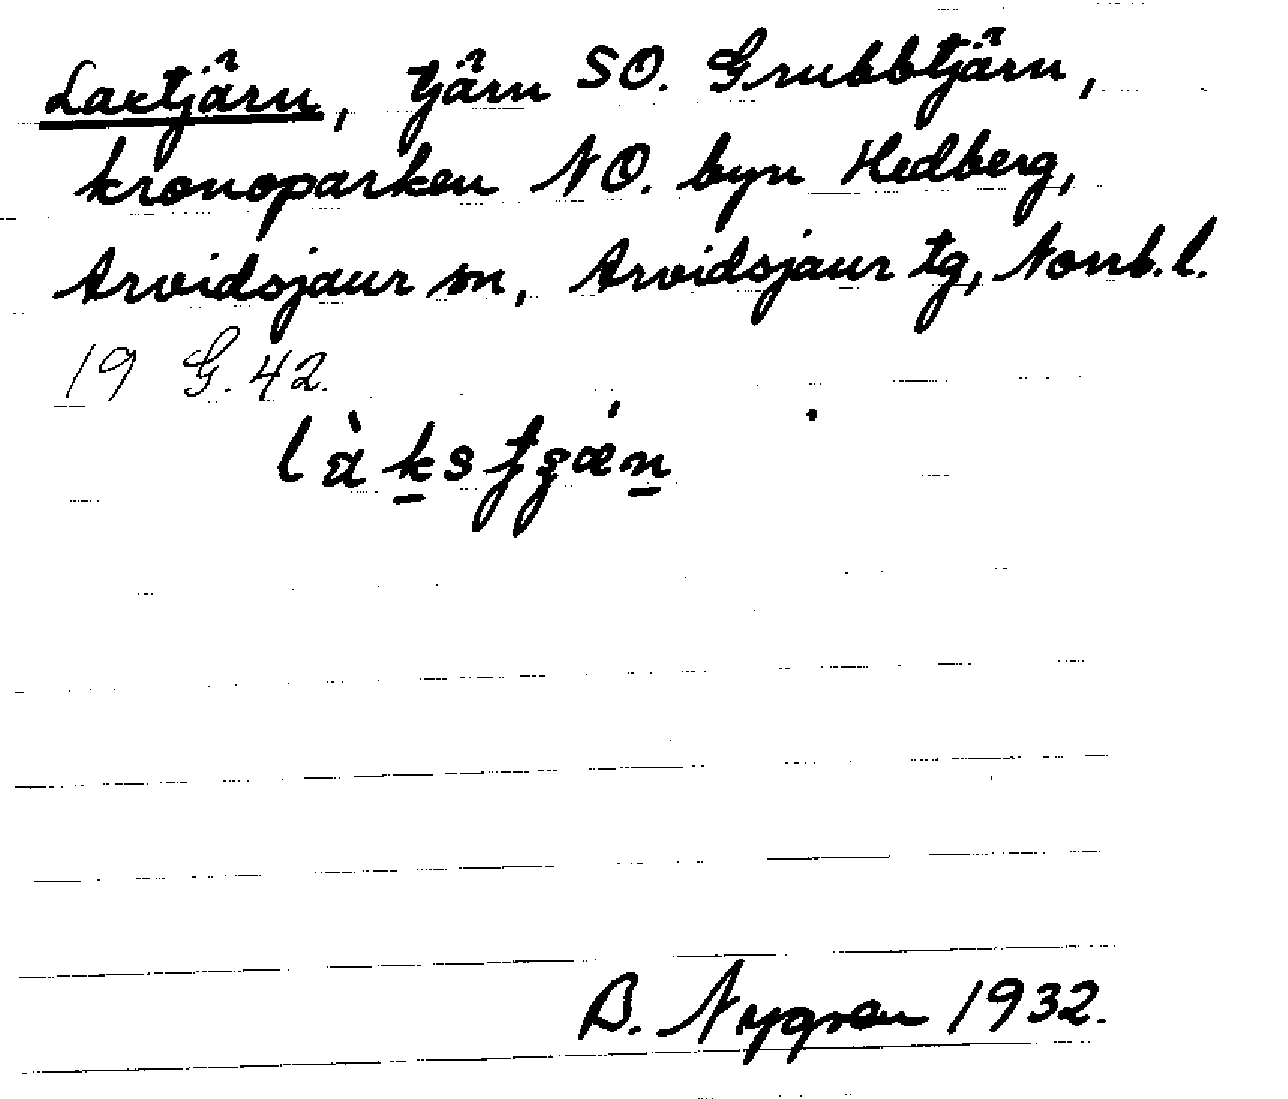 Laxtjärn, tjärn SO. Grubbtjärn,
kronoparken NO. byn Hedberg,
Arvidsjaur sn, Arvidsjaur tg, Norrb. l.
19 G. 42.
B. Nygren 1932.